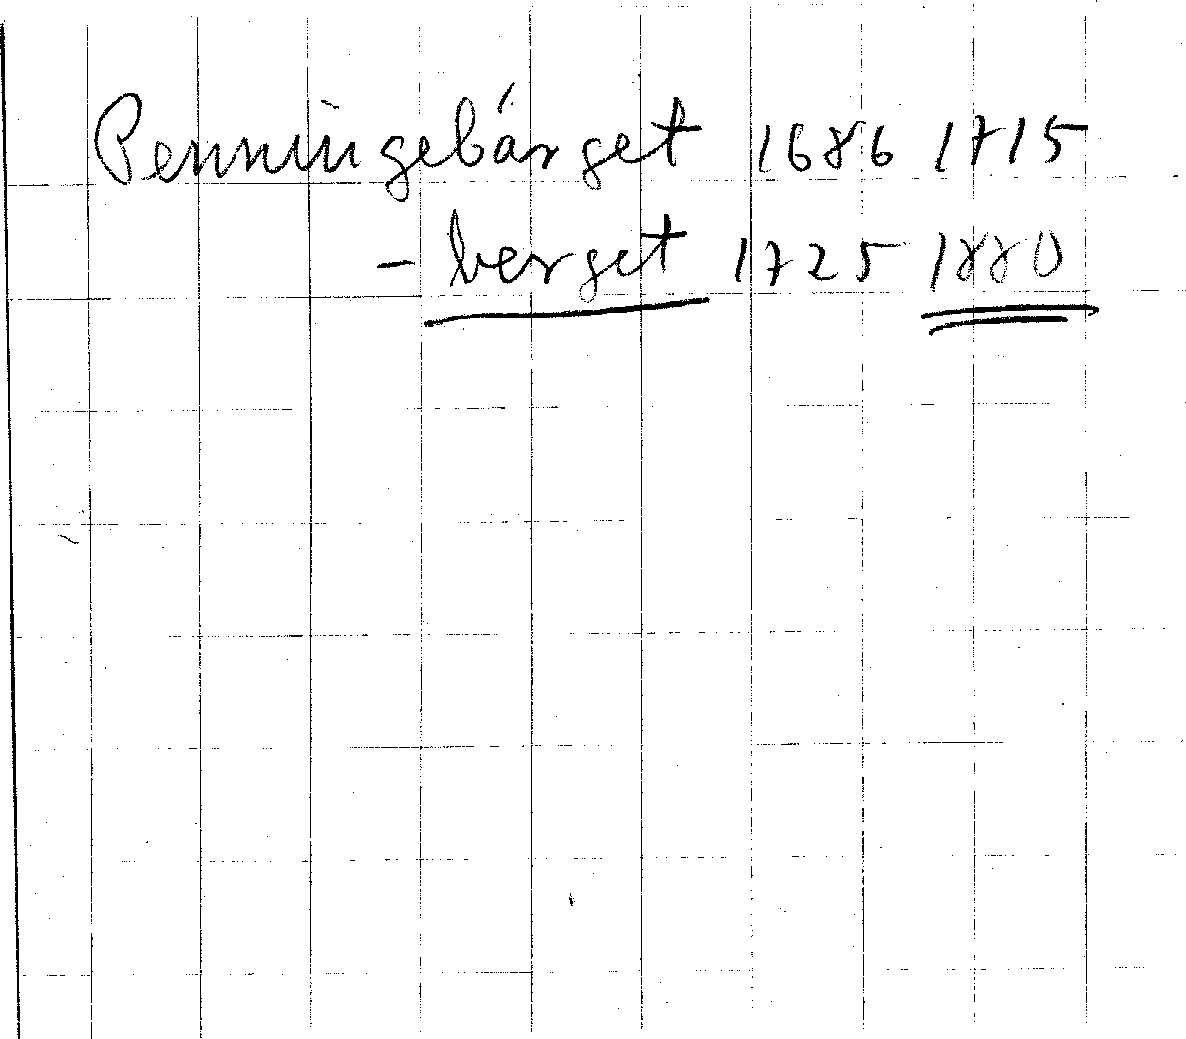 Penningebárget 1686 1715
- berget 1725 1880